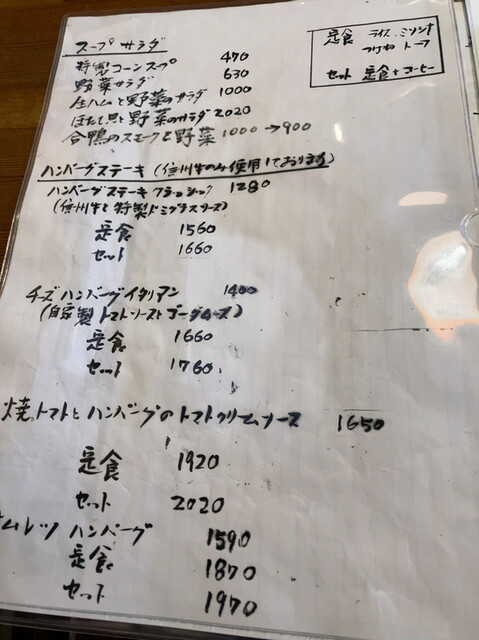 スープ サラダ
特製コーンスープ 470
野菜サラダ 630
生ハムと野菜のサラダ 1000
ほたて貝と野菜のサラダ 2020
合鴨のスモークと野菜 1000→900
定食 ライス、ミソシル
つけもの
セット 定食+コーヒー
ハンバーグステーキ (信州牛のみ使用しております)
ハンバーグステーキ クラッシック 1280
(信州牛と特製ドミグラスソース)
定食 1560
セット 1660
チーズハンバーグイタリアン 1400
(自家製トマトソースとゴーダチーズ)
定食 1660
セット 1760
焼トマトとハンバーグのトマトクリームソース 1650
定食 1920
セット 2020
ムレツ ハンバーグ 1590
定食 1870
セット 1970